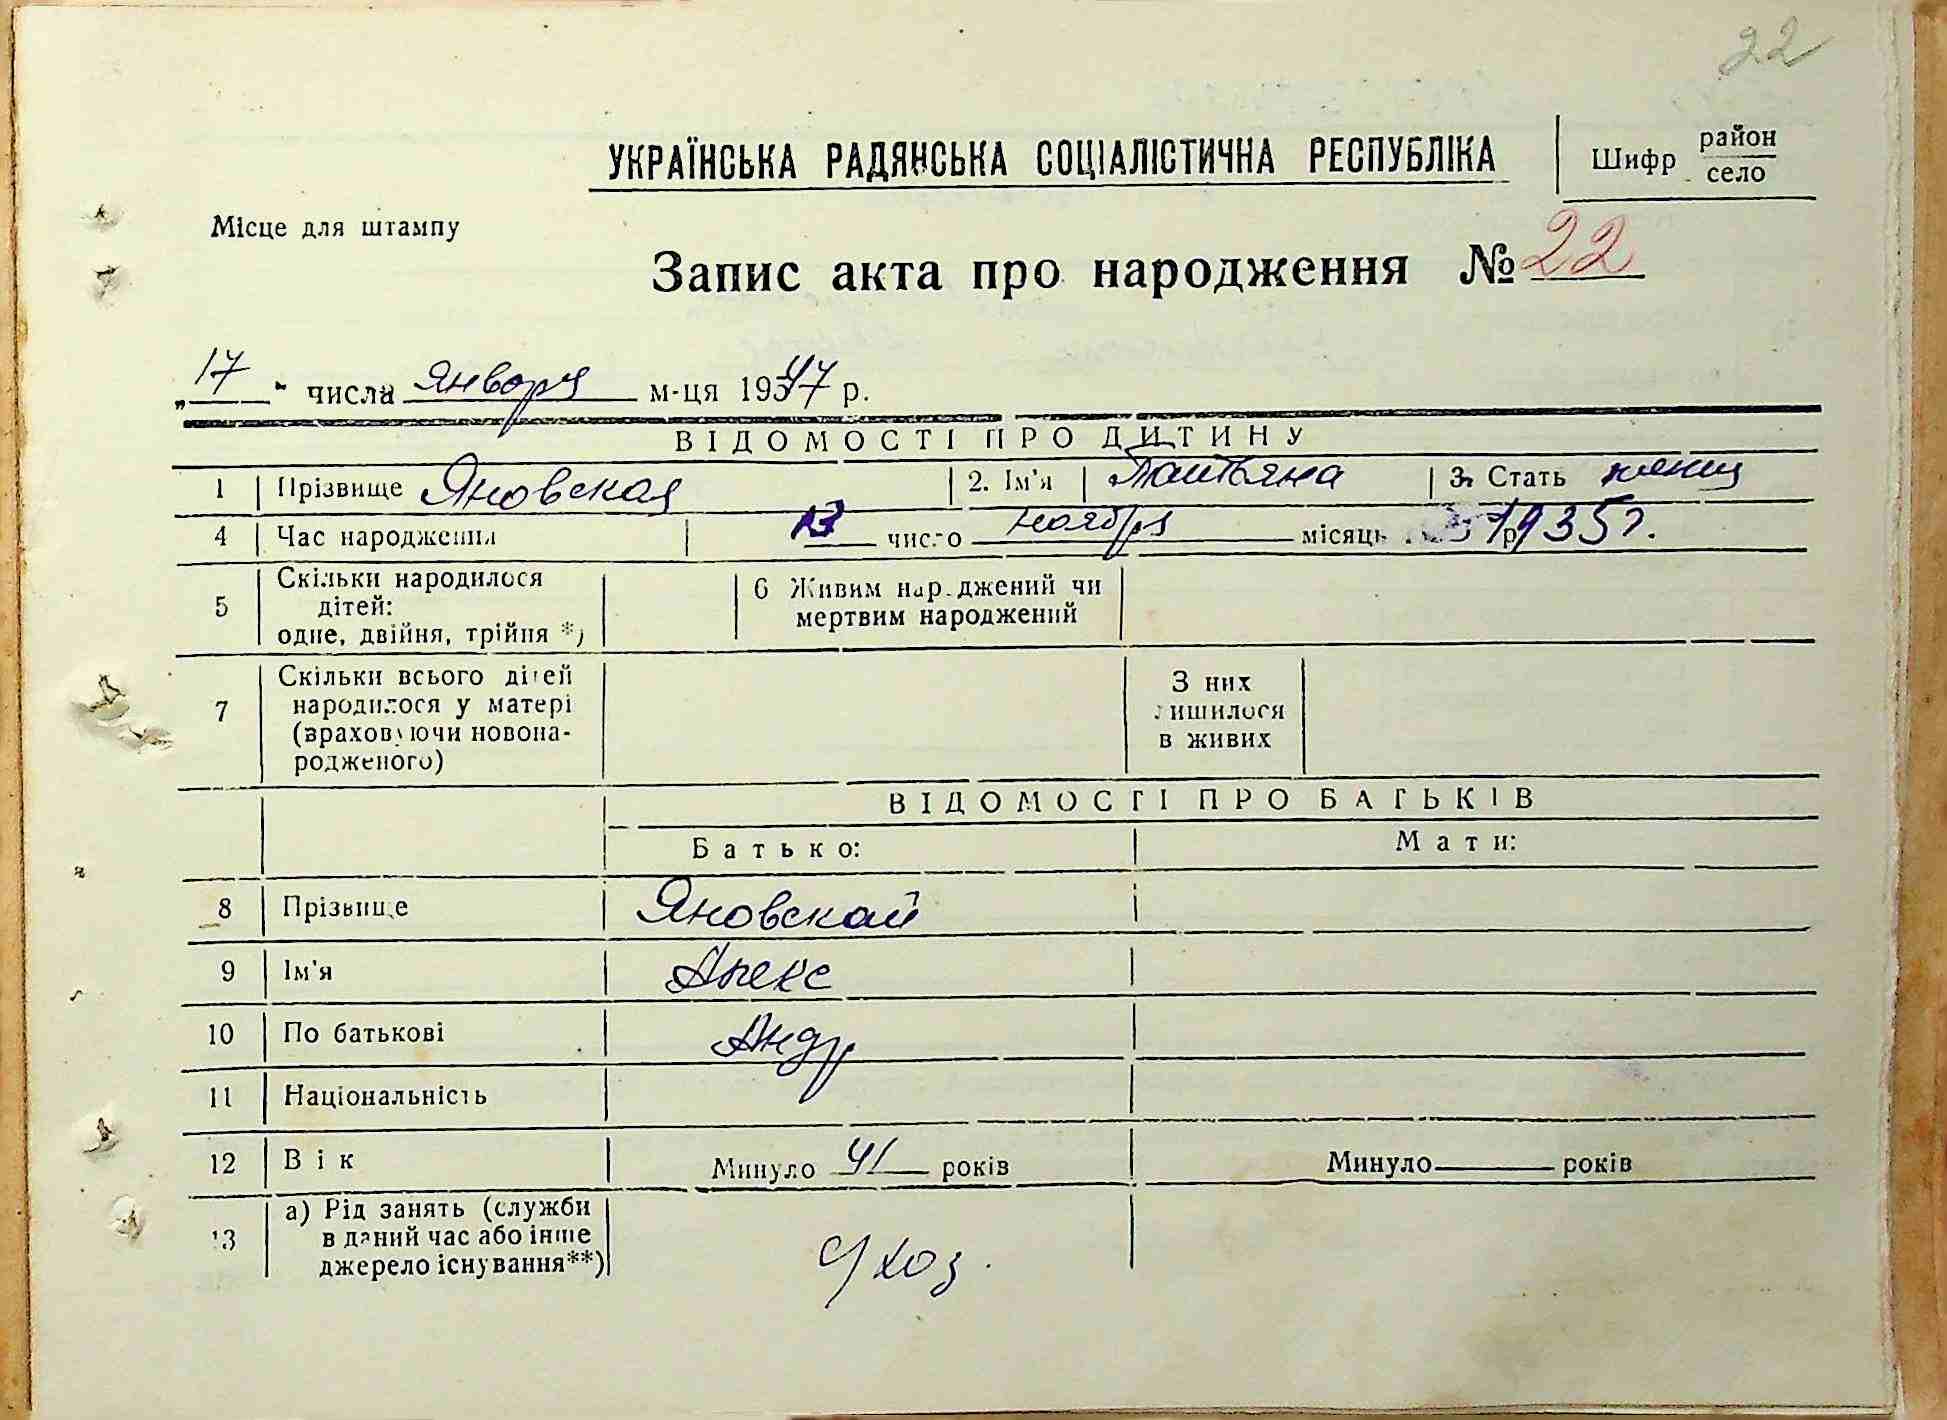 22
УКРАЇНСЬКА РАДЯНСЬКА СОЦІАЛІСТИЧНА РЕСПУБЛІКА
Шифр район
село
Місце для штампу
Запис акта про народження № 22
„17" числа января м-ця 1947 р.
ВІДОМОСТІ ПРО ДИТИНУ
1 Прізвище Яновская 2. Ім'я Татьяна 3. Стать женщ
4 Час народження 13 число ноября місяць 1935 г.
5 Скільки народилося дітей: одне, двійня, трійня *)
6 Живим народжений чи мертвим народжений
7 Скільки всього дітей народилося у матері (враховуючи новонародженого)
З них лишилося в живих
ВІДОМОСТІ ПРО БАТЬКІВ
Батько: Мати:
8 Прізвище Яновской
9 Ім'я Алекс
10 По батькові Андр
11 Національність
12 Вік Минуло 41 років Минуло років
13 а) Рід занять (служби в даний час або інше джерело існування**) с/хоз.